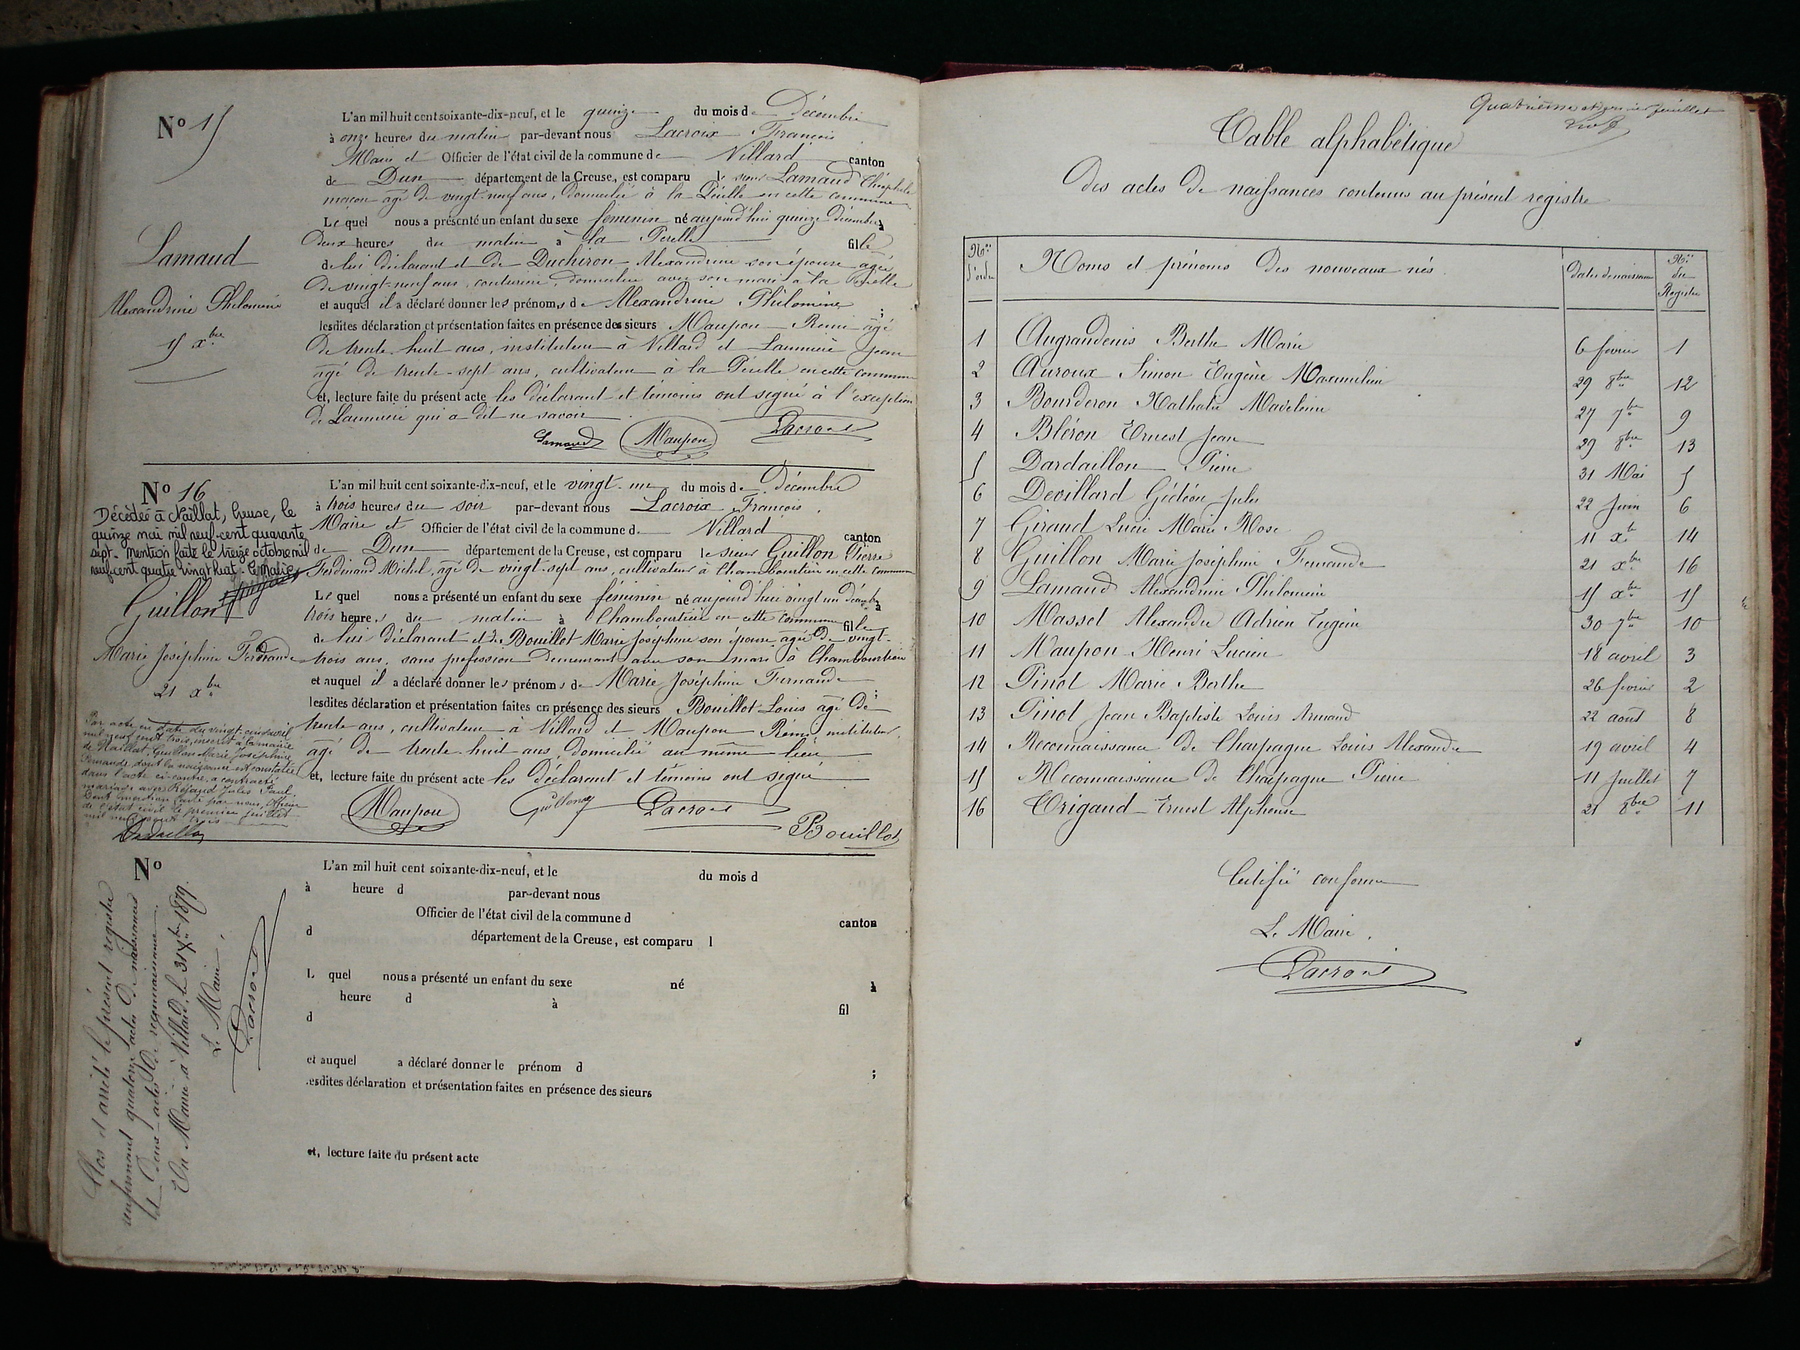 N° 15
Lamaud
Alexandrine Philomène
15 xbre
L'an mil huit cent soixante-dix-neuf, et le quinze du mois de Décembre
à onze heures du matin par-devant nous Lacroix François
Maire et Officier de l'état civil de la commune de Villard canton
de Dun département de la Creuse, est comparu le sieur Lamaud Théophile
maçon agé de vingt-neuf ans, domicilié à la Pérelle en cette commune
Le quel nous a présenté un enfant du sexe féminin né aujourd'hui quinze décembre à
deux heures du matin à la Perelle fille
de lui déclarant et de Duchiron Alexandrine son épouse agée
de vingt-neuf ans, couturière, domiciliée avec son mari à la Pérelle
et auquel il a déclaré donner les prénoms de Alexandrine Philomène ;
lesdites déclaration et présentation faites en présence des sieurs Maupou Remi agé
de trente-huit ans, instituteur à Villard et Laumière Jean
agé de trente-sept ans, cultivateur à la Pérelle en cette commune
et, lecture faite du présent acte les déclarant et témoins ont signé à l'exception
de Laumière qui a dit ne savoir
Lamaud Maupou Lacroix
N° 16
Décédée à Naillat, Creuse, le
quinze mai mil neuf-cent quarante
sept. Mention faite le treize octobre mil
neuf-cent quatre vingt huit.
Guillon
Marie Joséphine Fernande
21 xbre
Par acte en date du vingt cinq avril
mil neuf cent trois, inscrit à la mairie
de Naillat, Guillon Marie Joséphine
Fernande dont la naissance est constatée
dans l'acte ci-contre, a contracté
mariage avec Jules Paul.
Dont mention faite par nous, officier
de l'état civil le premier juillet
mil neuf cent trois
L'an mil huit cent soixante-dix-neuf, et le vingt-un du mois de décembre
à trois heures du soir par-devant nous Lacroix François
Maire et Officier de l'état civil de la commune de Villard canton
de Dun département de la Creuse, est comparu le sieur Guillon Pierre
Ferdinand Michel, agé de vingt-sept ans, cultivateur à Chamboursière en cette commune
Le quel nous a présenté un enfant du sexe féminin né aujourd'hui vingt un décembre à
trois heures du matin à Chamboursière en cette commune fille
de lui déclarant et de Bouillot Marie Joséphine son épouse agée de vingt-
trois ans, sans profession demeurant avec son mari à Chamboursière
et auquel il a déclaré donner les prénoms de Marie Joséphine Fernande ;
lesdites déclaration et présentation faites en présence des sieurs Bouillot Louis agé de
trente ans, cultivateur à Villard et Maupou Rémi instituteur,
agé de trente-huit ans, domicilié au même lieu
et, lecture faite du présent acte les déclarant et témoins ont signé
Maupou Guillon Lacroix
Bouillot
N°
Clos et arrêté le présent registre
renfermant quatorze actes de naissances
et deux actes de reconnaissance.
En Mairie à Villard, le 31 xbre 1879.
Le Maire,
Lacroix
L'an mil huit cent soixante-dix-neuf, et le du mois d
à heure d par-devant nous
Officier de l'état civil de la commune d canton
d département de la Creuse, est comparu l
L quel nous a présenté un enfant du sexe né à
heure d à fil
d
et auquel a déclaré donner le prénom d ;
lesdites déclaration et présentation faites en présence des sieurs
et, lecture faite du présent acte
Quatrième et dernier feuillet
Table alphabétique
des actes de naissances contenus au présent registre
Nos d'ordre Noms et prénoms des nouveaux nés. Dates de naissance Nos du Registre
1 Augrandenis Berthe Marie 6 février 1
2 Auroux Simon Eugène Maximilien 29 8bre 12
3 Bourderon Nathalie Madeleine 27 7bre 9
4 Bléron Ernest Jean 29 8bre 13
5 Dardaillon Pierre 31 Mai 5
6 Devillard Gédéon Jules 22 Juin 6
7 Giraud Lucie Marie Rose 11 xbre 14
8 Guillon Marie Joséphine Fernande 21 xbre 16
9 Lamaud Alexandrine Philomène 15 xbre 15
10 Massot Alexandre Adrien Eugène 30 7bre 10
11 Maupou Henri Lucien 18 avril 3
12 Pinot Marie Berthe 26 février 2
13 Pinot Jean Baptiste Louis Armand 22 août 8
14 Reconnaissance de Chapagne Louis Alexandre 19 avril 4
15 Reconnaissance de Chapagne Pierre 11 Juillet 7
16 Trigaud Ernest Alphonse 21 8bre 11
Certifié conforme
Le Maire,
Lacroix